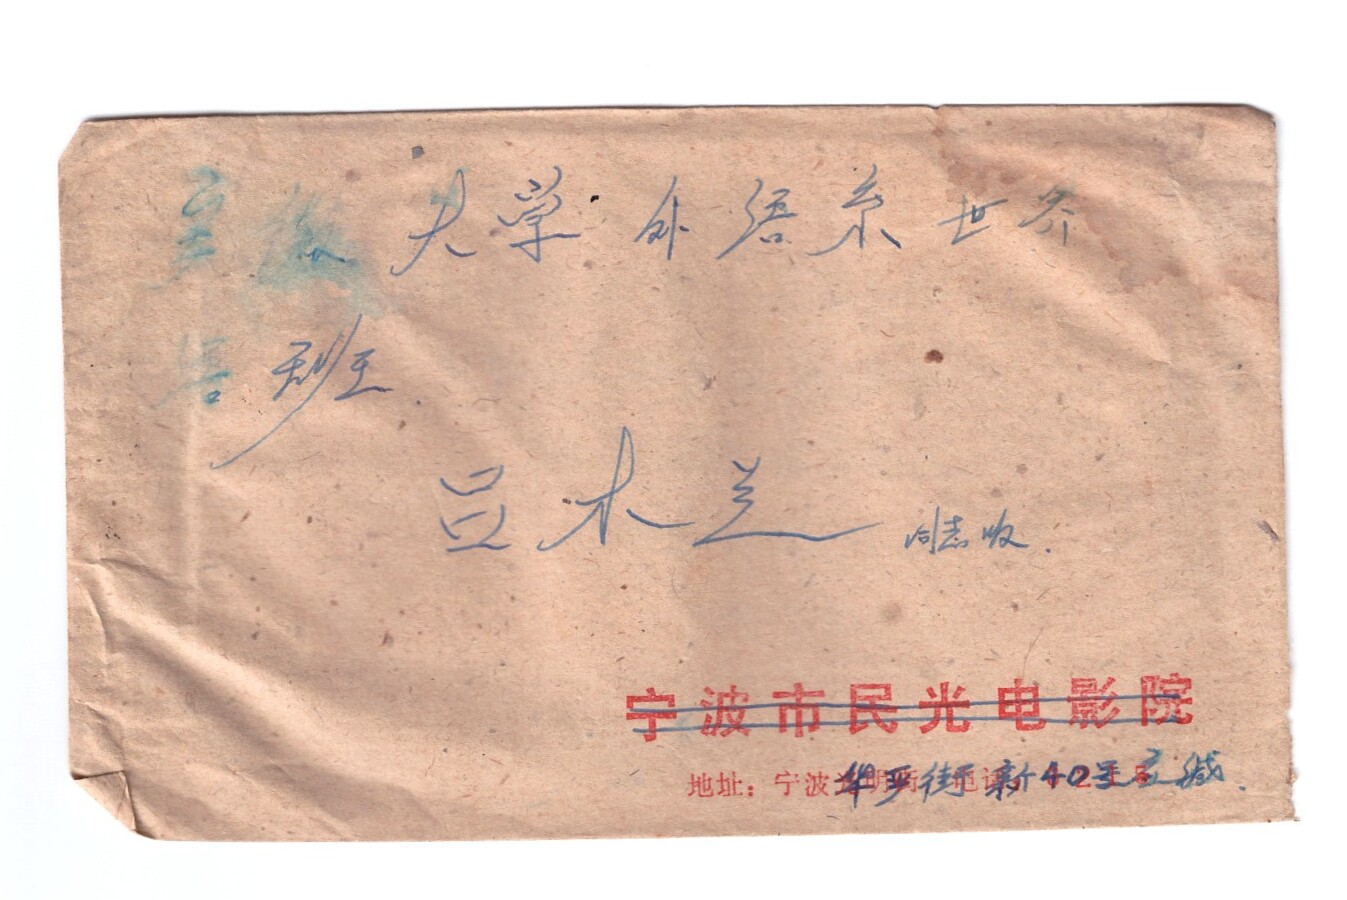 安徽大学外语系世界
语班
吕木兰 同志收
宁波市民光电影院
地址：宁波 华严街新40号 缄